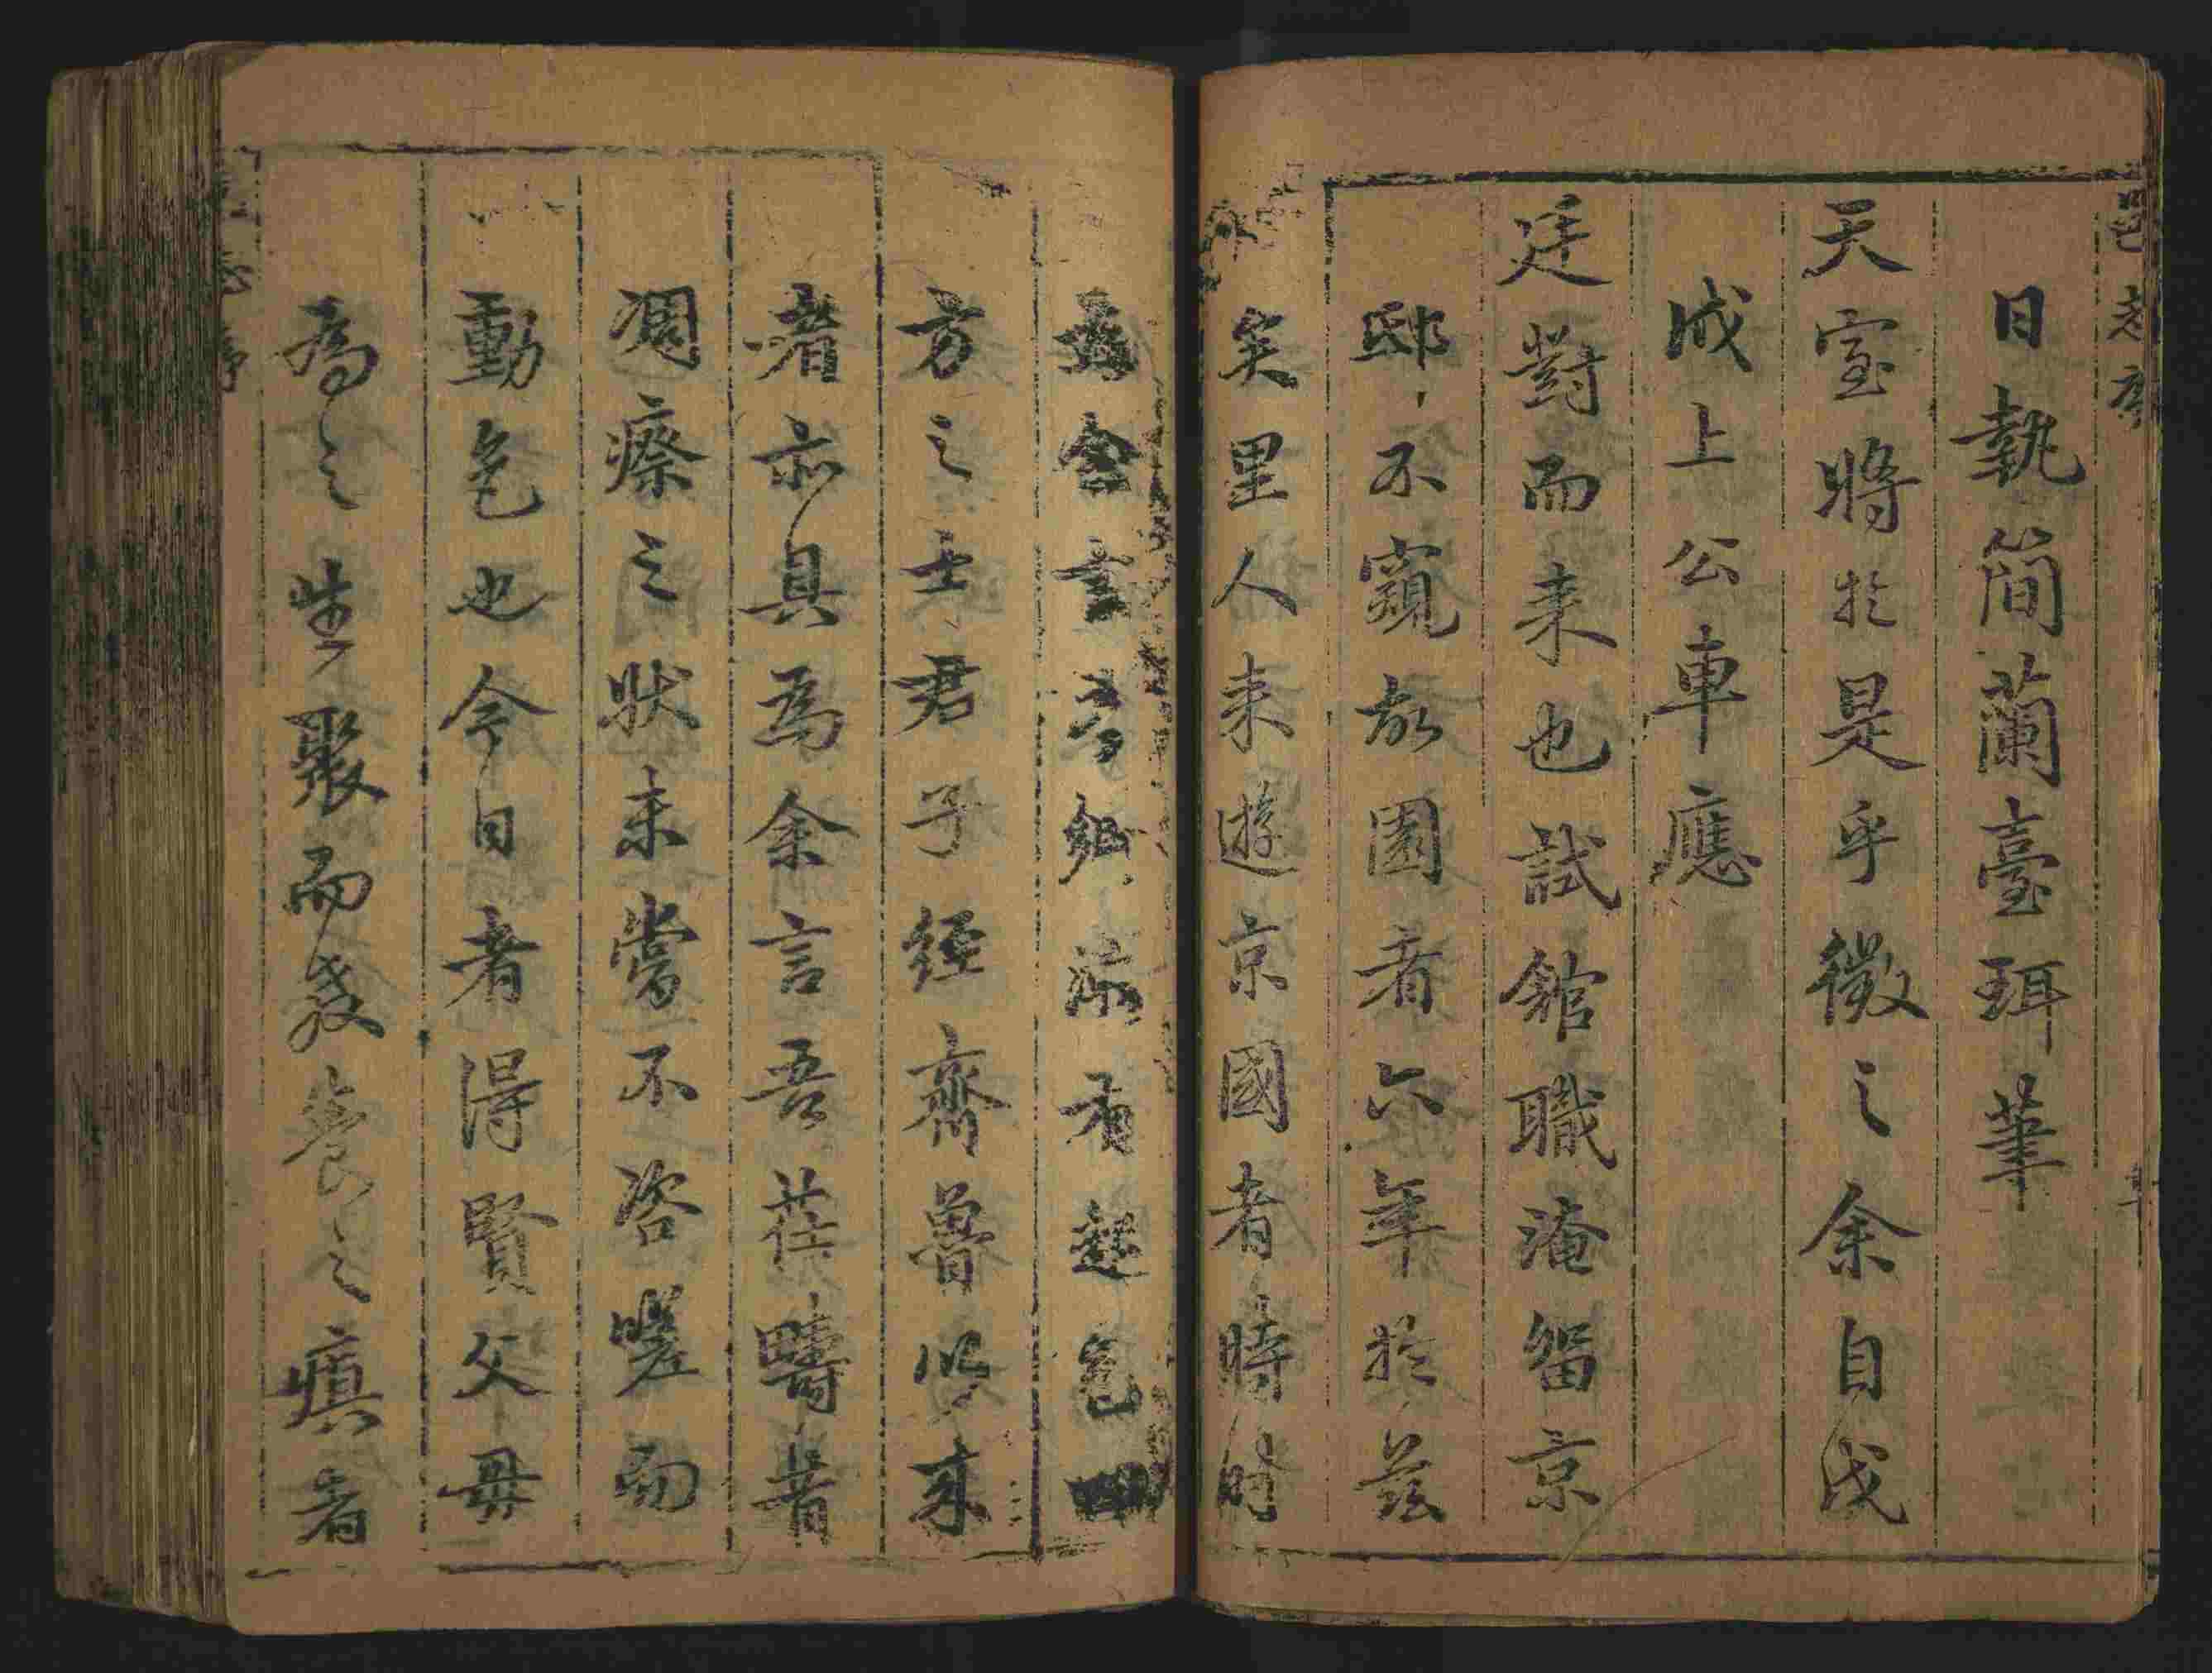 日執簡蘭臺珥筆
天室將於是乎徵之余自戊
戌上公車應
廷對而来也試館職淹留京
邸不窺故園者六年於茲
矣里人来遊京國者時時
為余言
有起色四
方之士君子經齊魯以来
者亦具為余言吾莊疇昔
凋瘵之狀未嘗不咨嗟而
動色也今日者得賢父母
為之生聚而教養之瘨者